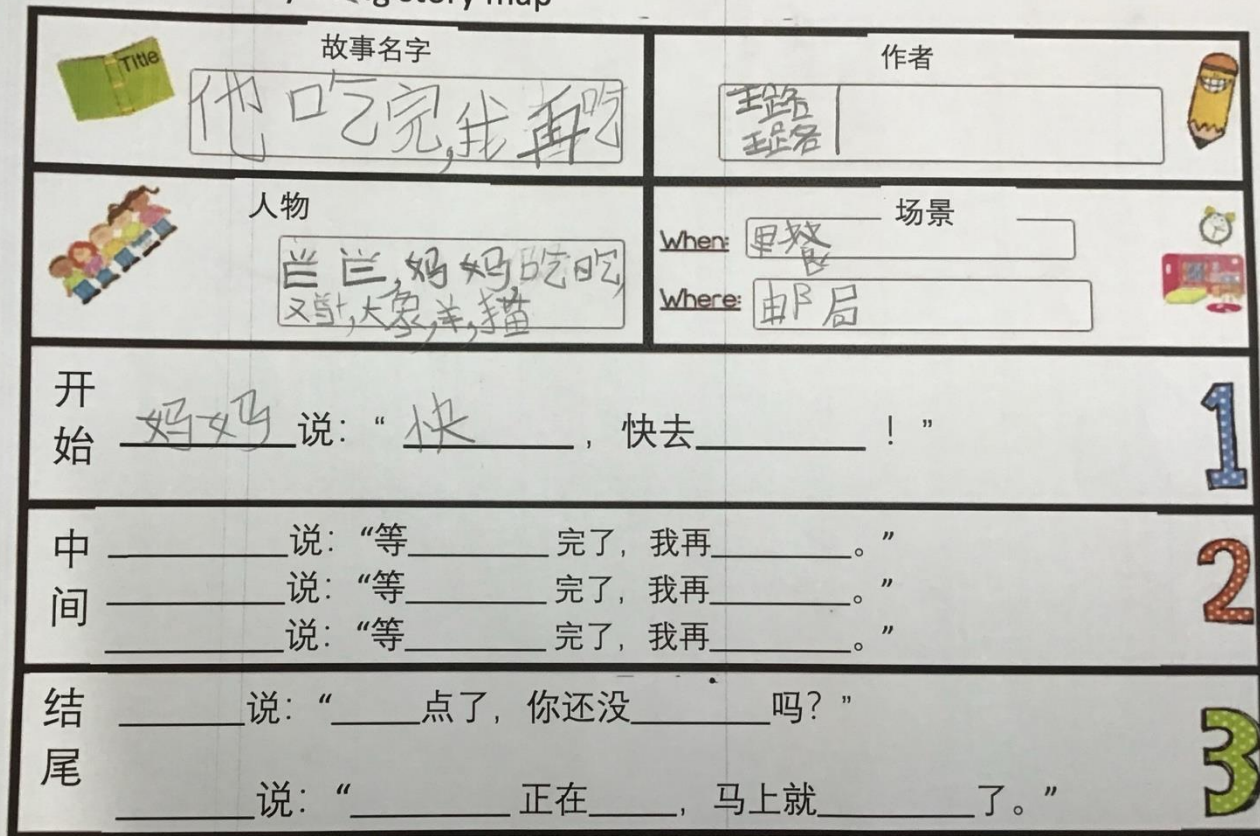 story map
Title
故事名字
他吃完,我再吃
作者
璐
璐
人物
兰兰,妈妈,吃吃,
鸡,大象,羊,猫
场景
When: 早餐
Where: 邮局
开始
妈妈说：“快，快去！”
1
中间
说：“等完了，我再。”
说：“等完了，我再。”
说：“等完了，我再。”
2
结尾
说：“点了，你还没吗？”
说：“正在，马上就了。”
3